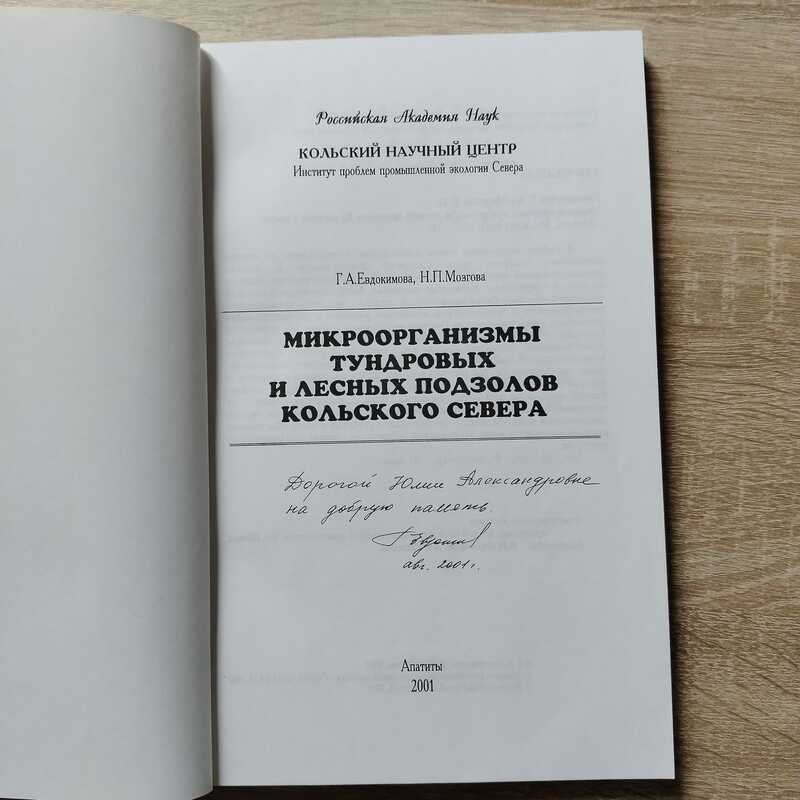 Российская Академия Наук
КОЛЬСКИЙ НАУЧНЫЙ ЦЕНТР
Институт проблем промышленной экологии Севера
Г.А.Евдокимова, Н.П.Мозгова
МИКРООРГАНИЗМЫ
ТУНДРОВЫХ
И ЛЕСНЫХ ПОДЗОЛОВ
КОЛЬСКОГО СЕВЕРА
Дорогой Юлии Александровне
на добрую память.
авг. 2001 г.
Апатиты
2001